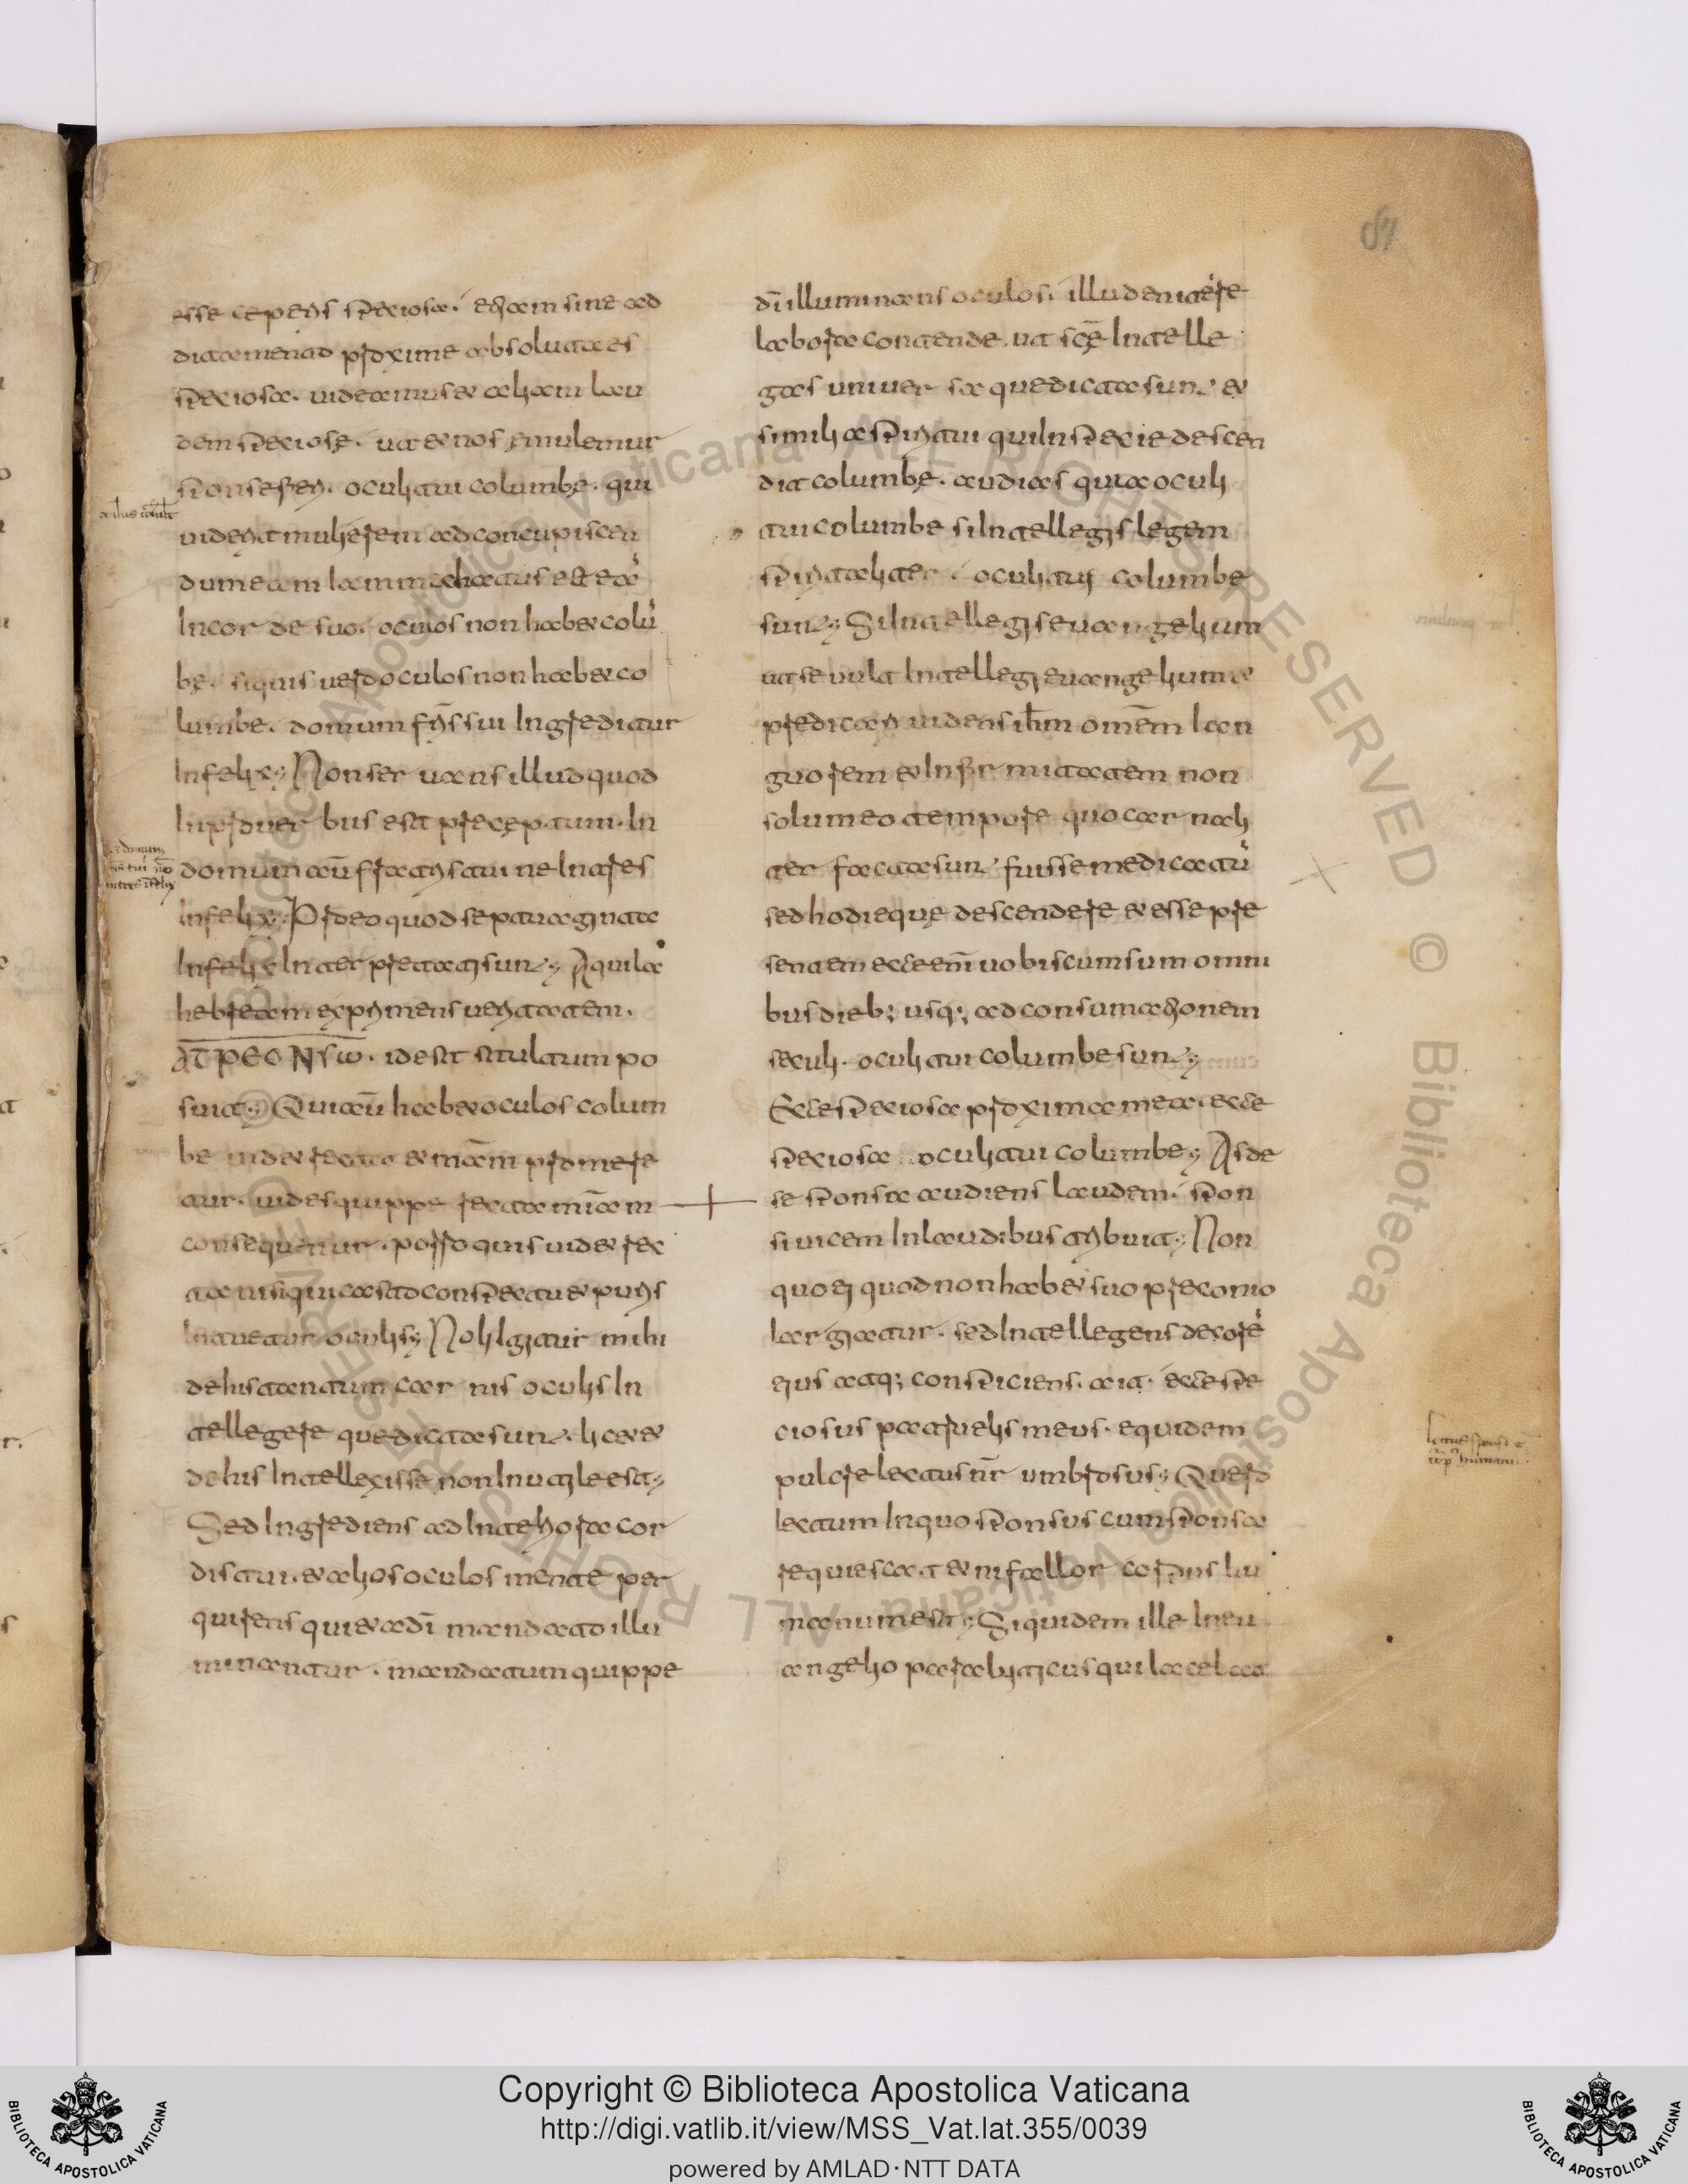 esse ceperis speciosa. etiam sine ad
ditamento proxime absoluta es
speciosa. uideamus et aliam lau
dem speciose. ut et nos emulemur
sponse fieri. oculi tui columbe. qui
uiderit mulierem ad concupiscen
dum eam iam mechatus est eā
In cor de suo. oculos non habet colū
be. siquis uero oculos non habet co
lumbe. domum fr̄is sui Ingreditur
Infelix; Non ser uans illud quod
In prouer bus est preceptum. In
domum aū fratris tui ne Intres
Infelix; Pro eo quod septuaginta
Infelix Inter pretati sunt; Aquila
hebream exprimens ueritatem.
ΑΠΡΕΟΝΤω. id est stultum po
suit; Qui aū habet oculos colum
be uidet recta et m̄am promere
tur. uides quippe recta mīam
consequentur. porro quis uidet rec
ta nisi qui casto conspectu et puris
Intuetur oculis; Noli Igitur mihi
de his tantum car nis oculis In
tellegere que dicta sunt. licet et
de his Intellexisse non Inutile est;
Sed Ingrediens ad Interiora cor
dis tui. et alios oculos mente per
quirens qui et a dī mandato illu
minantur. mandatum quippe
dn̄i illuminans oculos. illud enitēre
labora contende. ut scē Intelle
gas uniuer sa que dicta sunt et
simili a spiritui qui In specie descen
dit columbe. audias quia oculi
tui columbe si Intellegis legem
spiritaliter. oculi tui columbe
sunt; Si Intellegis euangelium
ut se uult Intellegi euangelium et
predicari uidens ih̄m omēm lan
guorem et Infir mitatem non
solum eo tempore quo car nali
ter facta sunt fuisse medicatū
sed hodieque descendere et esse pre
sentem ecce enī uobiscum sum omni
bus dieb; usq; ad consumationem
seculi. oculi tui columbe sunt;
Ecce speciosa proxima mea. ecce
speciosa oculi tui columbe; Asde
se sponsa audiens laudem. spon
si uicem In laudibus tribuit; Non
quo ei quod non habet suo preconio
largiatur. sed Intellegens decorē
eius atq; conspiciens. ait. ecce spe
ciosus patruelis meus. equidem
pulcre lectus nr̄ umbrosus; Quero
lectum In quo sponsus cum sponsa
requiescat et ni fallor corpus hu
manum est; Siquidem ille In eu
angelio paraliticus qui iacebat
oculus columbe
In domum
fr̄is tui nō
intres Ifelix
Lectus sponsi ē
corp' humanū
Copyright © Biblioteca Apostolica Vaticana
http://digi.vatlib.it/view/MSS_Vat.lat.355/0039
powered by AMLAD·NTT DATA
BIBLIOTECA APOSTOLICA VATICANA
BIBLIOTECA APOSTOLICA VATICANA
© Biblioteca Apostolica Vaticana ALL RIGHTS RESERVED © Biblioteca Apostolica Vaticana ALL RIGHTS RESERVED